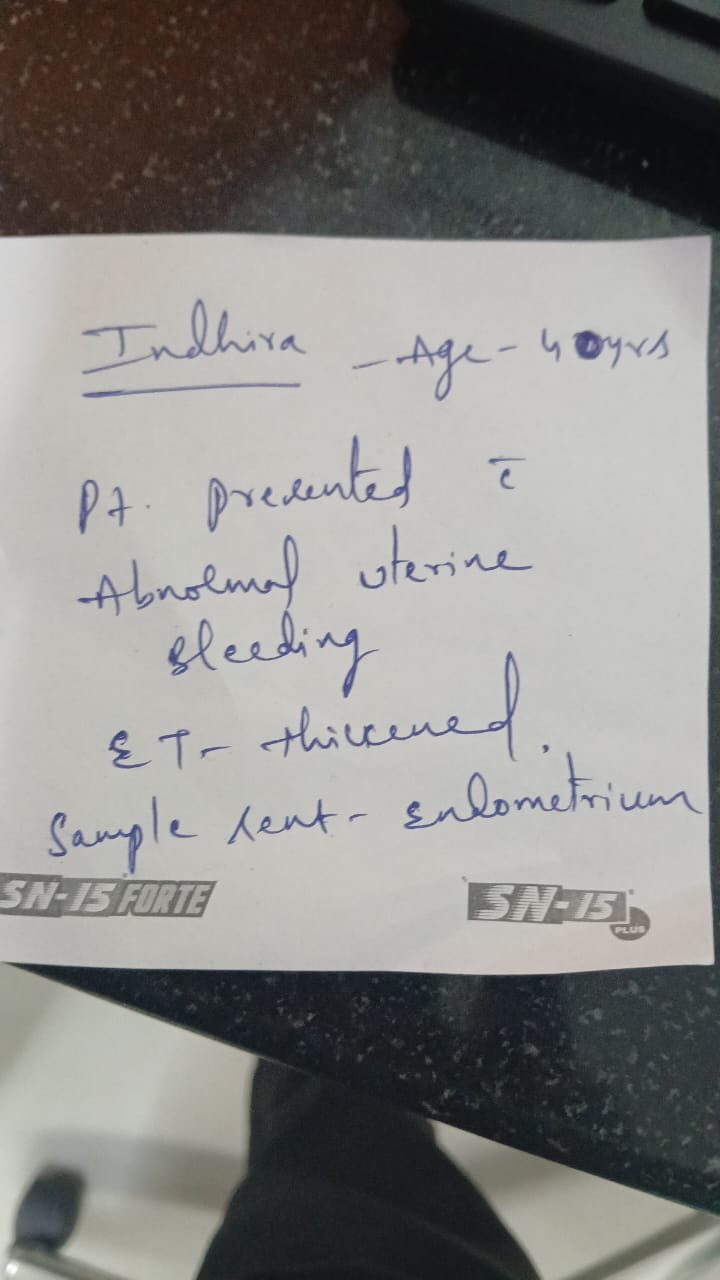 Indhira - Age - 40yrs
Pt. presented c̄
Abnormal uterine
Bleeding
ET - thickened.
Sample sent - Endometrium
SN-15 FORTE SN-15 PLUS